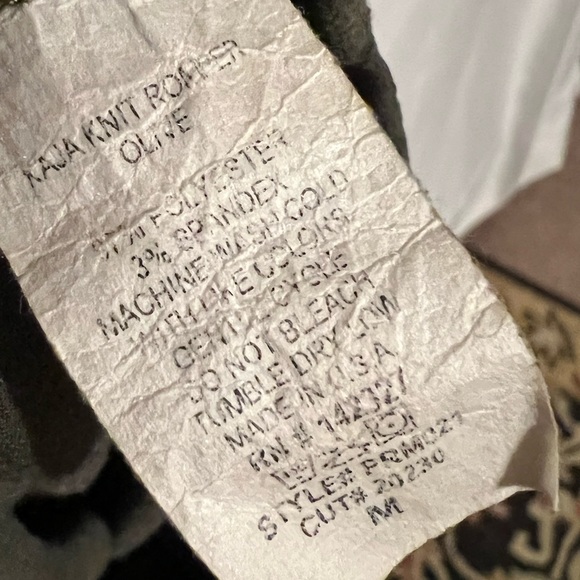 KAJA KNIT ROPPER
OLIVE
97% POLYESTER
3% SPANDEX
MACHINE WASH COLD
WITH LIKE COLORS
GENTLE CYCLE
DO NOT BLEACH
TUMBLE DRY LOW
MADE IN U.S.A
RN # 142327
STYLE# PRM021
CUT# 20230
M